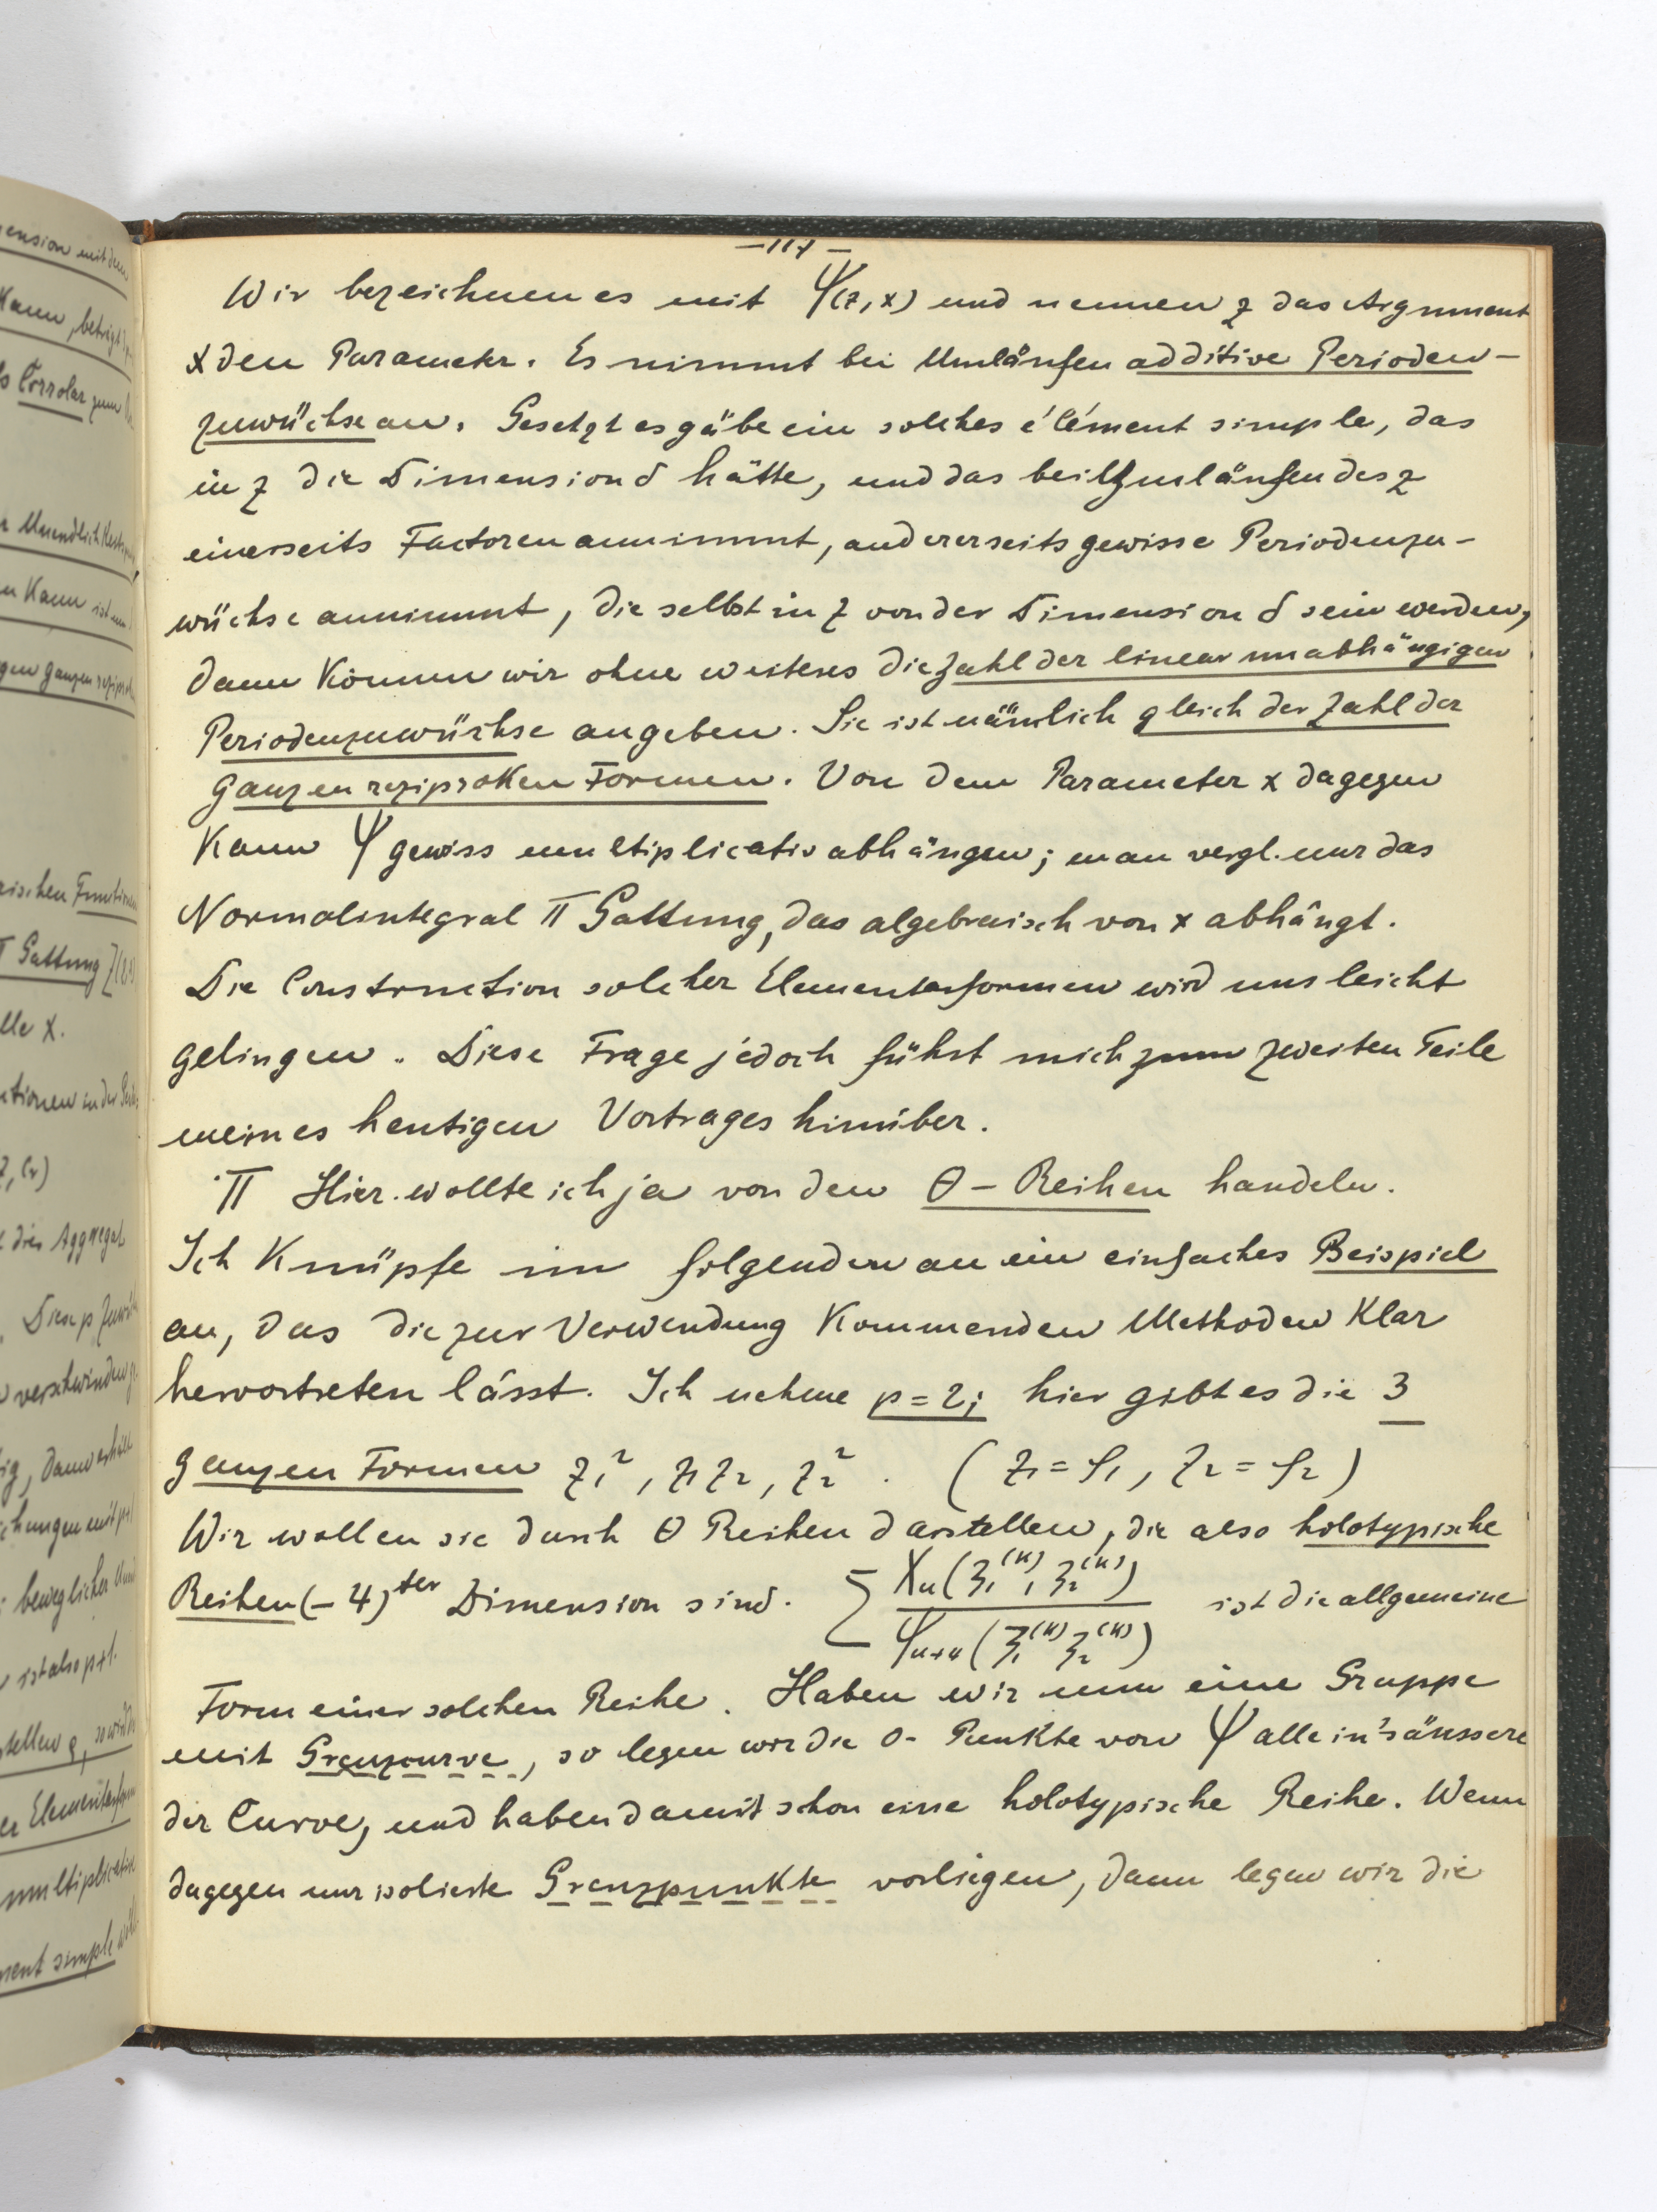 –117–
Wir bezeichnen es mit Ψ(z,x) und nennen z das Argument
x den Parameter. Es nimmt bei Umläufen additive Perioden–
zuwüchse an. Gesetzt es gäbe ein solches élément simple, das
in z die Dimension d hätte, und das bei Umläufen des z
einerseits Factoren annimmt, andererseits gewisse Periodenzu–
wüchse annimmt, die selbst in z von der Dimension d sein werden,
dann können wir ohne weiteres die Zahl der linear unabhängigen
Periodenzuwüchse angeben. Sie ist nämlich gleich der Zahl der
ganzen reziproken Formen. Von dem Parameter x dagegen
kann Ψ gewiss multiplicativ abhängen; man vergl. nur das
Normalintegral II Gattung, das algebraisch von x abhängt.
Die Construction solcher Elementarformen wird uns leicht
gelingen. Diese Frage jedoch führt mich zum zweiten Teile
meines heutigen Vortrages hinüber.
II Hier wollte ich ja von den Θ – Reihen handeln.
Ich knüpfe im folgenden an ein einfaches Beispiel
an, das die zur Verwendung kommenden Methoden klar
hervortreten lässt. Ich nehme p = 2; hier gibt es die 3
ganzen Formen z₁², z₁z₂, z₂². (z₁ = φ₁, z₂ = φ₂)
Wir wollen sie durch Θ Reihen darstellen, die also holotypische
Reihen (– 4)ter Dimension sind. Σ Χₙ(ζ₁⁽ᵏ⁾, ζ₂⁽ᵏ⁾) / Ψₙ₊₄(ζ₁⁽ᵏ⁾ ζ₂⁽ᵏ⁾) ist die allgemeine
Form einer solchen Reihe. Haben wir nun eine Gruppe
mit Grenzcurve, so legen wir die 0- Punkte von Ψ alle in's äussere
der Curve, und haben damit schon eine holotypische Reihe. Wenn
dagegen nur isolierte Grenzpunkte vorliegen, dann legen wir die